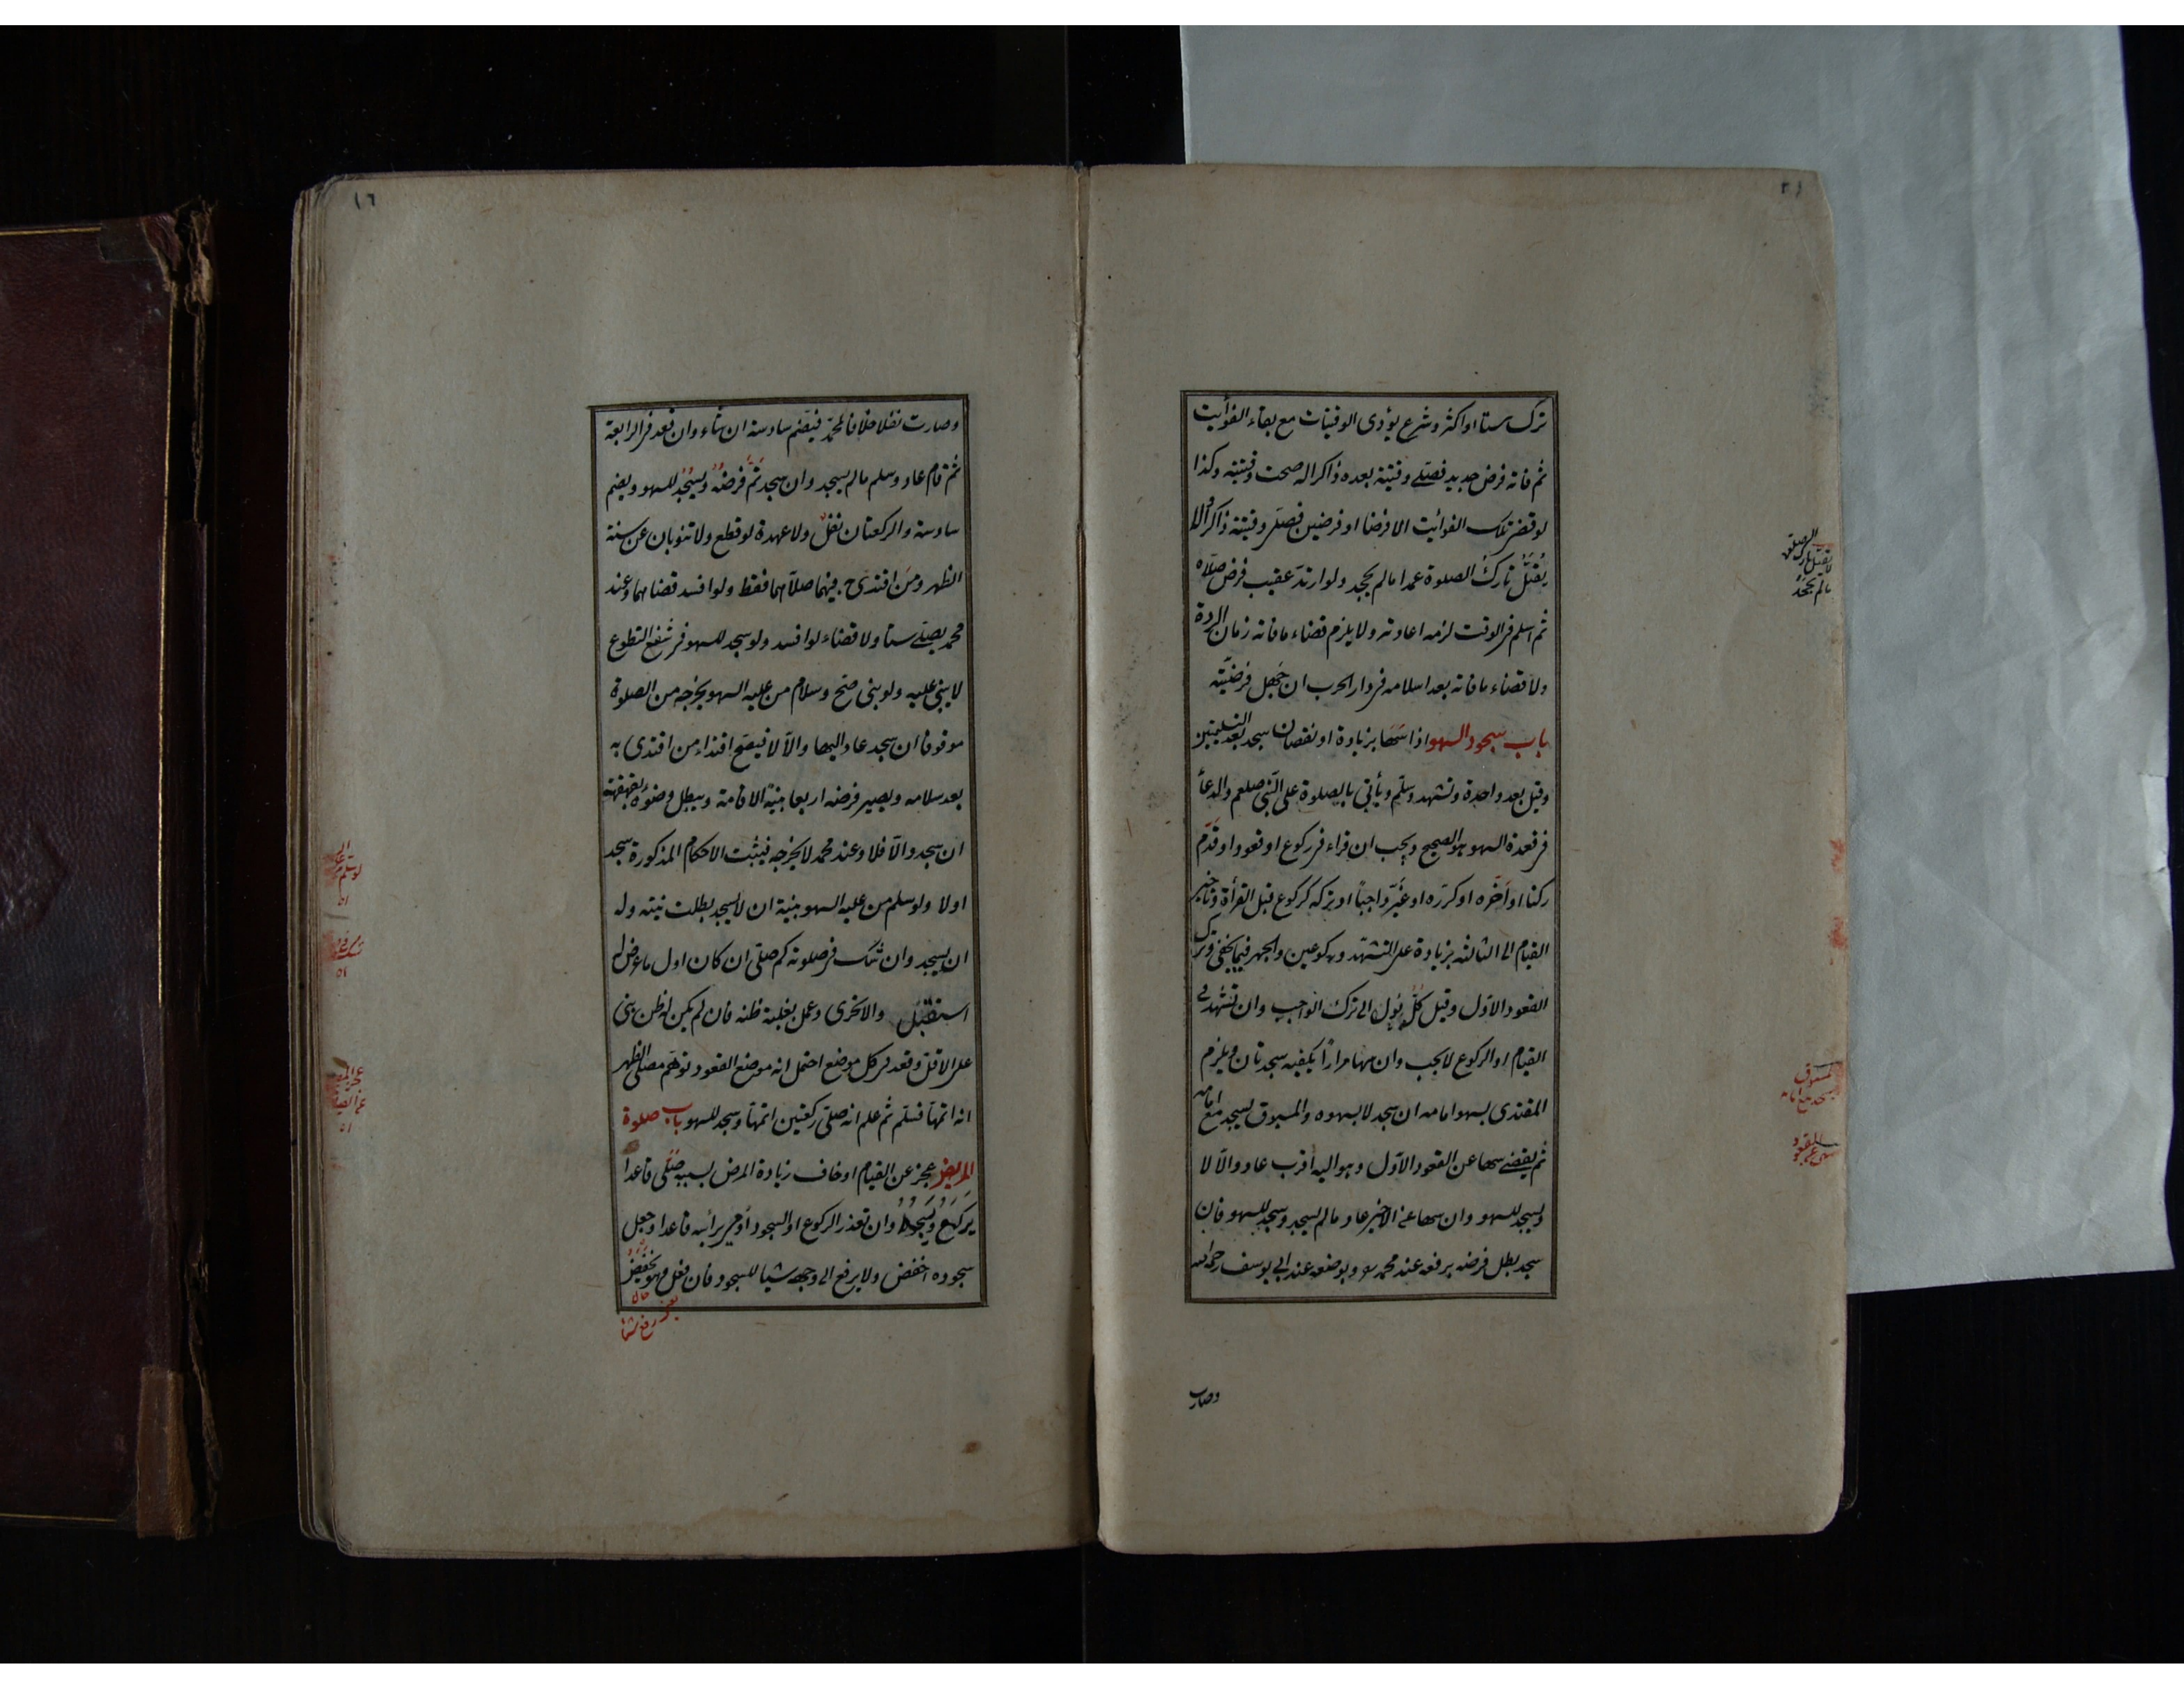 ترك ستا او اكثر وشرع يؤدى الوقتيات مع بقاء الفوائت
ثم فاته فرض جديد فصلى وقتية بعده ذاكرا له صحت وقتيته وكذا
لو قضى تلك الفوائت الا فرضا او فرضين فصلى وقتية ذاكرا ولا
يقتل تارك الصلوة عمدا ما لم يجحد ولو ارتد عقيب فرض صلاه
ثم اسلم فى الوقت لزمه اعادته ولا يلزم قضاء ما فاته زمان الردة
ولا قضاء ما فاته بعد اسلامه فى دار الحرب ان جهل فرضيته
باب سجود السهو اذا سها بزيادة او نقصان سجد بعد التسليمتين
وقيل بعد واحدة وتشهد وسلم ويأتى بالصلوة على النبى صلعم والدعاء
فى قعدة السهو هو الصحيح ويجب ان قراء فى ركوع او قعود او قدم
ركنا او اخره او كرره او غير واجبا او تركه كركوع قبل القرأة وتاخير
القيام الى الثالثة بزيادة على التشهد وركوعين والجهر فيما يخفى وترك
القعود الاول وقيل كل يؤل الى ترك الواجب وان تشهد فى
القيام او الركوع لا يجب وان سها مرارا يكفيه سجدتان ويلزم
المقتدى بسهو امامه ان سجد لا بسهوه والمسبوق يسجد مع امامه
ثم يقضى سها عن القعود الاول وهو اليه اقرب عاد والا لا
ويسجد للسهو وان سها عن الاخير عاد ما لم يسجد وسجد للسهو فان
سجد بطل فرضه برفعه عند محمد وبوضعه عند ابى يوسف رحمه الله
وصارت
لا يقتل تارك الصلوة
ما لم يجحد
المسبوق
يسجد مع امامه
١٦
وصارت نفلا خلافا لمحمد فيضم سادسة ان شاء وان قعد فى الرابعة
ثم قام عاد وسلم ما لم يسجد وان سجد تم فرضه ويسجد للسهو ويضم
سادسة والركعتان نفل ولا عهدة لو قطع ولا تنوبان عن سنة
الظهر ومن اقتدى ح فيهما صلاهما فقط ولو افسد قضاهما وعند
محمد يصلى ستا ولا قضاء لو افسد ولو سجد للسهو فى شفع التطوع
لا يبنى عليه ولو بنى صح وسلام من عليه السهو يخرجه من الصلوة
موقوفا ان سجد عاد اليها والا لا فيصح اقتداء من اقتدى به
بعد سلامه ويصير فرضه اربعا بنية الاقامة ويبطل وضوءه بقهقهة
ان سجد والا فلا وعند محمد لا يخرجه فيثبت الاحكام المذكورة سجد
اولا ولو سلم من عليه السهو بنية ان لا يسجد بطلت نيته وله
ان يسجد وان شك فى صلوته كم صلى ان كان اول ما عرض له
استقبل والا تحرى وعمل بغلبة ظنه فان لم يكن له ظن بنى
على الاقل وقعد فى كل موضع احتمل انه موضع القعود توهم مصلى الظهر
انه اتمها فسلم ثم علم انه صلى ركعتين اتمها وسجد للسهو باب صلوة
المريض عجز عن القيام او خاف زيادة المرض بسببه صلى قاعدا
يركع ويسجد وان تعذر الركوع او السجود اومى برأسه قاعدا وجعل
سجوده اخفض ولا يرفع الى وجهه شيا للسجود فان فعل وهو يخفض